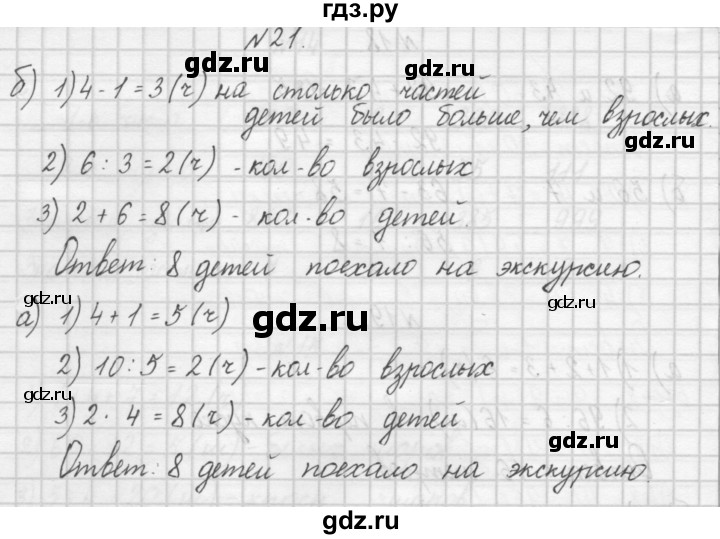 гдз.ру
№21.
gdz.ru gdz.ru
б) 1) 4 - 1 = 3 (ч) на столько частей
детей было больше, чем взрослых.
gdz.ru
2) 6 : 3 = 2 (ч) - кол-во взрослых
gdz.ru
3) 2 + 6 = 8 (ч) - кол-во детей.
Ответ: 8 детей поехало на экскурсию.
gdz.ru gdz.ru
а) 1) 4 + 1 = 5 (ч)
gdz.ru
2) 10 : 5 = 2 (ч) - кол-во взрослых
gdz.ru
3) 2 · 4 = 8 (ч) - кол-во детей
gdz.ru
Ответ: 8 детей поехало на экскурсию.
gdz.ru